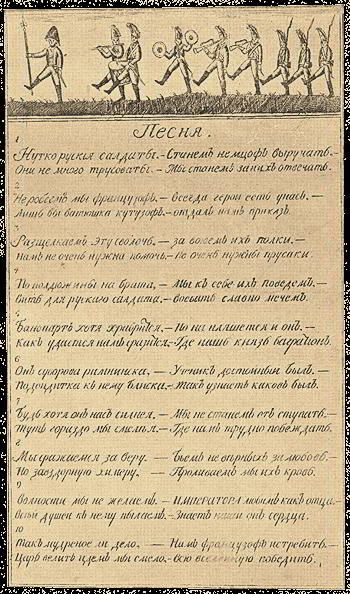 Песня.
1
Нутко руския салдаты. — Станемъ немцофъ выручать.
Они не много трусоваты — Мы станемъ за нихъ отвечать.
2
Неробеемъ мы французофъ. — всегда герои есть унасъ. —
Лишь бы батюшка кутузофъ. — отдалъ намъ приказъ.
3
Разщелкаемъ эту сволочь. — за вовсемъ ихъ полки. —
Намъ не очень нужна помочь. — Не очень нужны прусаки.
4
По полдюжины на брата, — Мы к себе ихъ поведемъ. —
бить для рускаго салдата. — славно мечемъ.
5
Банопартъ хотя храбрится. — Но на пляшется и онъ. —
Какъ удастся намъ сразится. — Где нашъ князь багратионъ.
6
Онъ суворова римниска, — Ученикъ достойный былъ. —
Подойдитка к нему блиска. — Такъ узнаетъ каковъ былъ.
7
Будь хотя онъ насъ силнея. — Мы не станемъ отступать. —
Тутъ гораздо мы смелья. — Где намъ трудно побеждать.
8
Мы сражаемся за веру. — бьемъ неверныхъ за любовь.
По завздорную химеру. — Проливаемъ мы ихъ кровь.
9
Волности мы не желаемъ. — ИМПЕРАТОРА любимъ какъ отца.
Всеи душеи къ нему пылаемъ. — Знаетъ наши онъ сердца.
10
Такъ мудреное ли дело. — Намъ французофъ истребить. —
Царь велитъ идемъ мы смело. — всю вселенную победить.